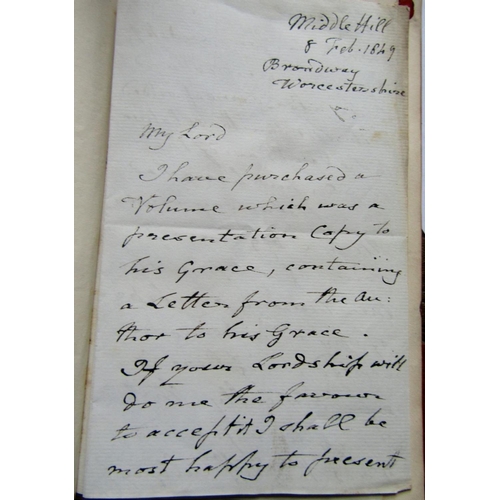 Middle Hill
8 Feb. 1849
Broadway
Worcestershire
My Lord
I have purchased a
Volume which was a
presentation Copy to
his Grace, containing
a Letter from the Au:
thor to his Grace.
If your Lordship will
do me the favour
to accept it I shall be
most happy to present